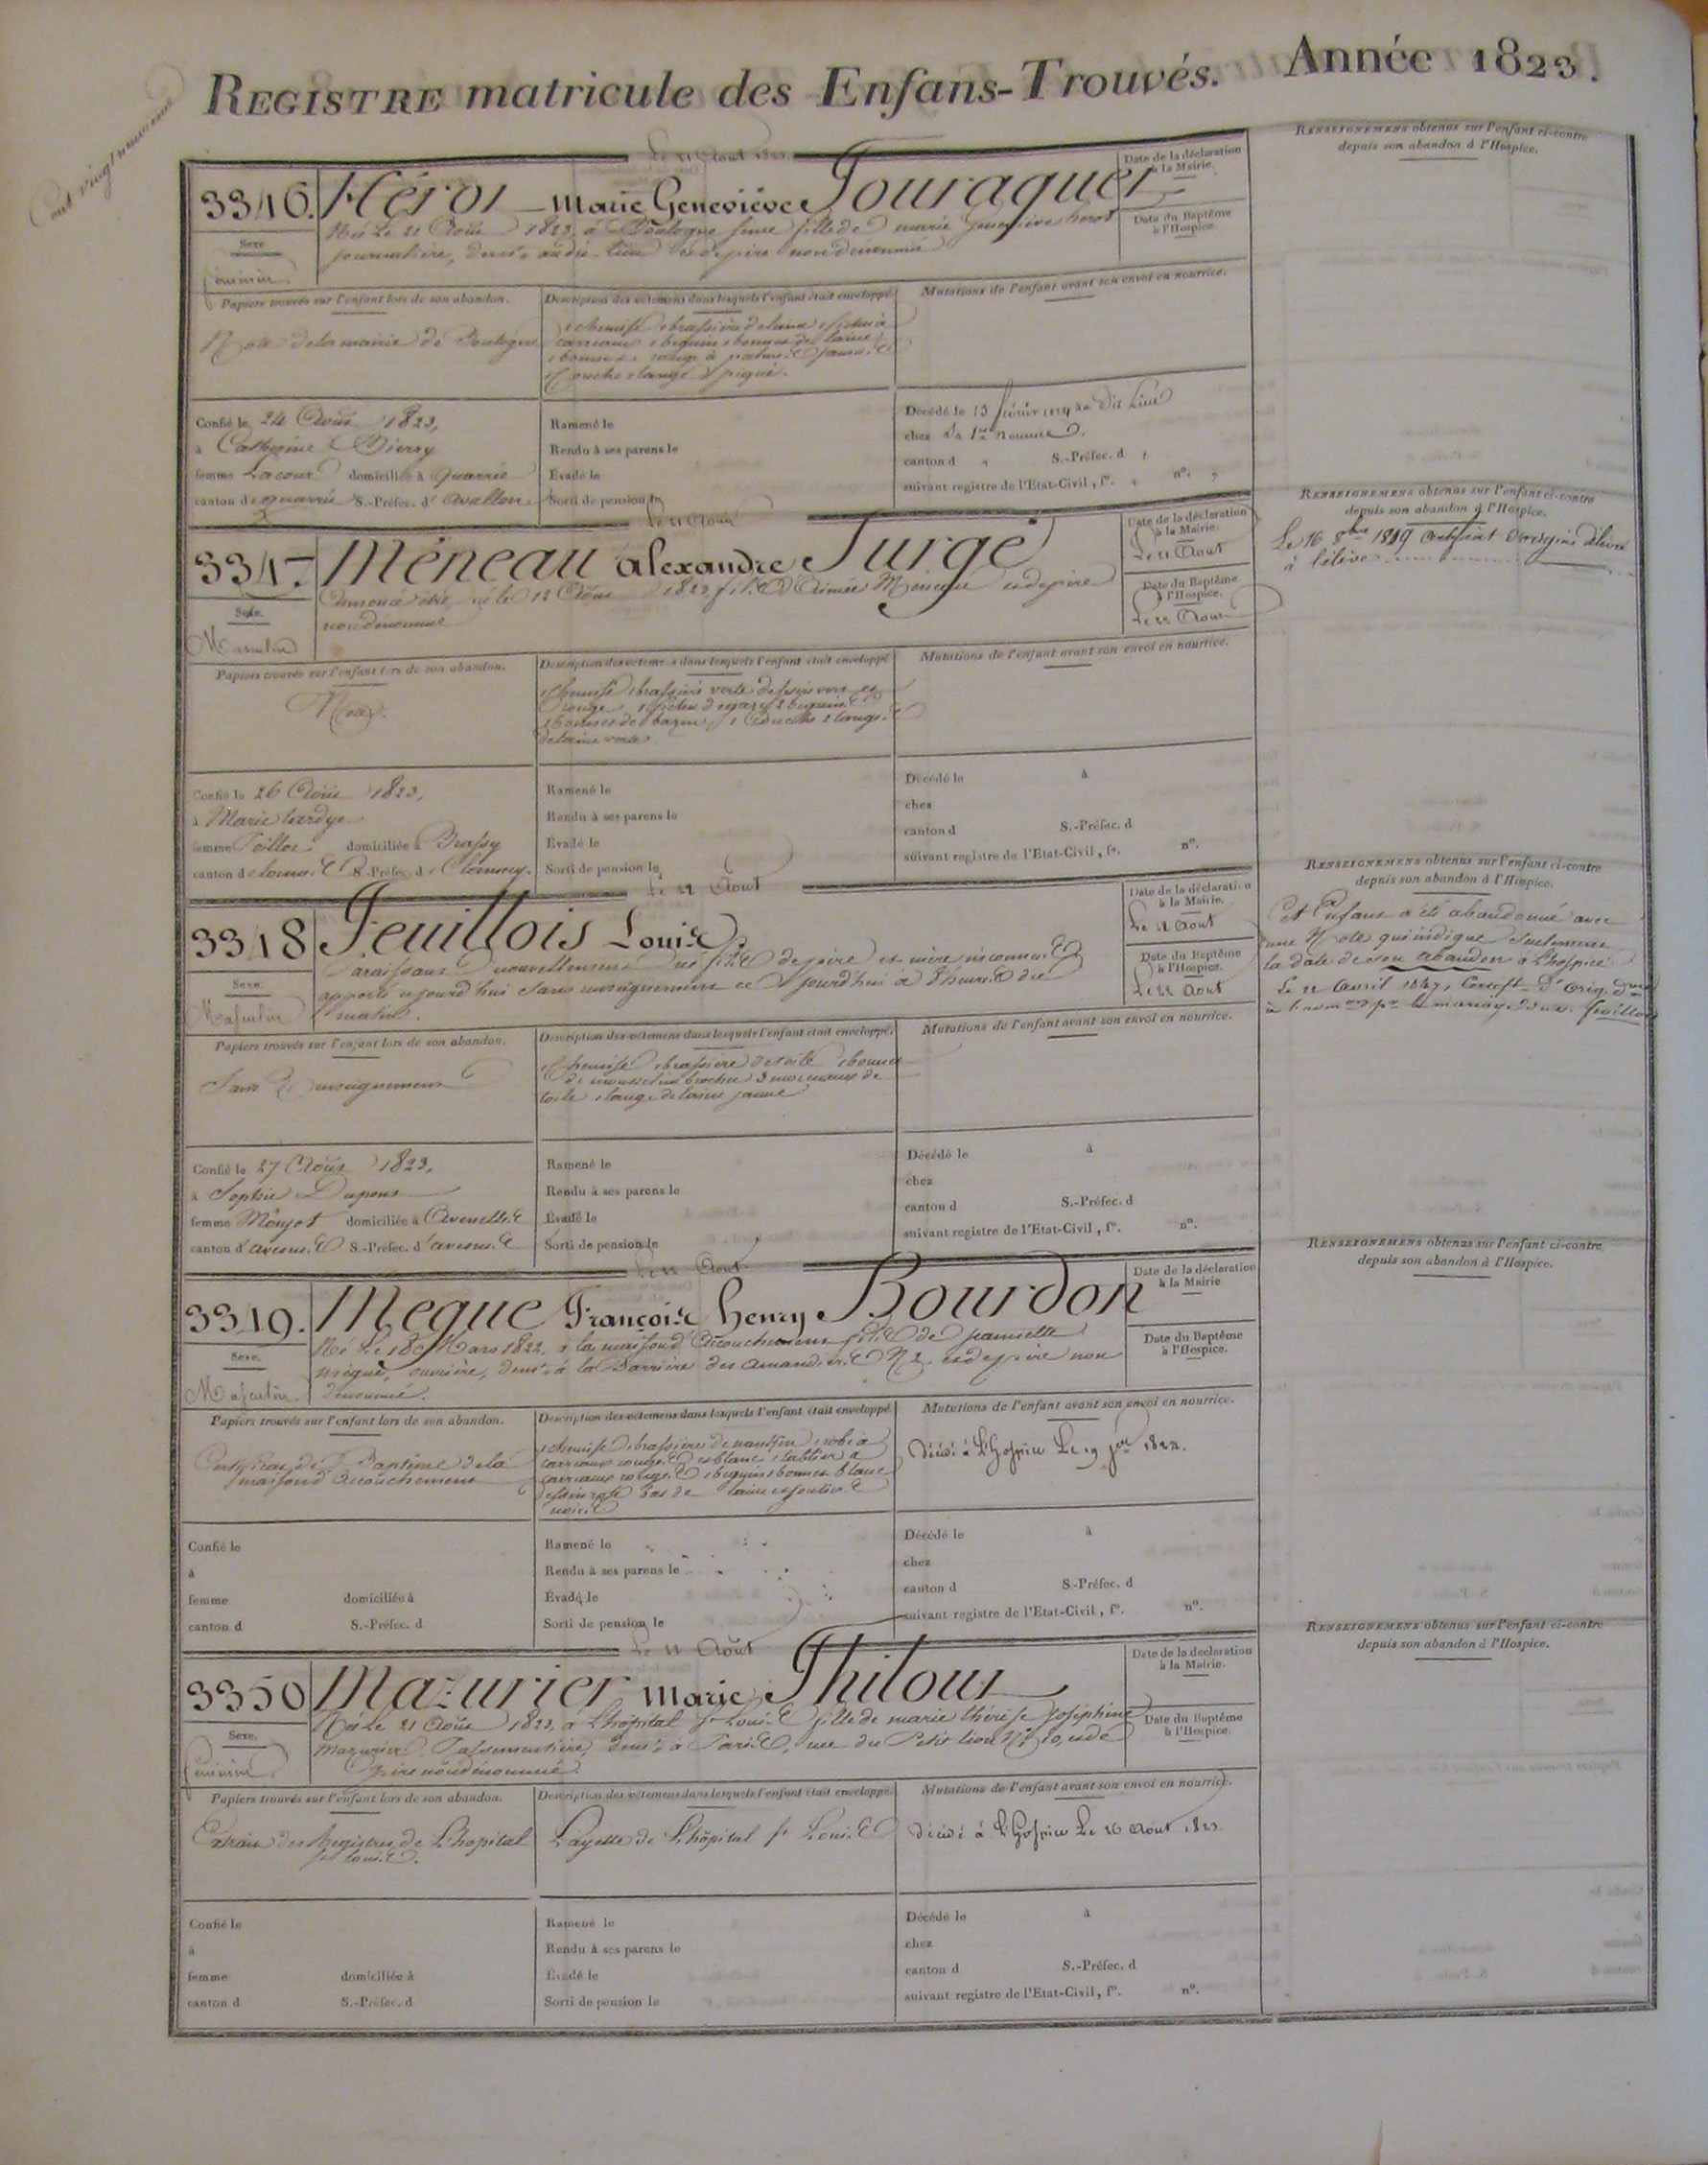 REGISTRE matricule des Enfans-Trouvés. Année 1823.
Le 21 Août 1823
3346. Hérot Marie Geneviève Jouraquer
Date de la déclaration à la Mairie.
Née Le 21 Août 1823, à Boulogne Seine fille de marie Geneviève herot
Date du Baptême à l'Hospice.
journalière, demt. audit lieu et de père non dénommé
Sexe.
féminin
Papiers trouvés sur l'enfant lors de son abandon.
Note de la mairie de Boulogne
Description des vêtemens dans lesquels l'enfant était enveloppé
1 chemise 1 brassière de laine 1 fichu à
carreaux 1 béguin 1 bonnet de laine
1 couche 1 lange piqué.
Mutations de l'enfant avant son envoi en nourrice.
Confié le 24 Août 1823,
à Catherine Dierry
femme Lacour domiciliée à quarrée
canton de quarrée S.-Préfec. d'Avallon.
Ramené le
Rendu à ses parens le
Évadé le
Sorti de pension le
Décédé le 13 février 1824 au dit Lieu
chez Sa 1re Nourrice.
canton d S.-Préfec. d
suivant registre de l'Etat-Civil, fº. nº.
RENSEIGNEMENS obtenus sur l'enfant ci-contre
depuis son abandon à l'Hospice.
Le 22 Août
3347 Méneau alexandre Surgé
Date de la déclaration à la Mairie.
Le 22 Août
Annoncé être né le 12 Août 1823, fils d'Aimée Meneau et de père
non dénommé
Date du Baptême à l'Hospice.
Le 22 Août
Sexe.
Masculin
Papiers trouvés sur l'enfant lors de son abandon.
Description des vêtemens dans lesquels l'enfant était enveloppé
1 chemise 1 brassière verte dessins vert et
rouge 1 fichu de gaze 2 béguins
1 bonnet de bazin, 1 couche 2 langes
de laine verte
Mutations de l'enfant avant son envoi en nourrice.
Confié le 26 Août 1823,
à Marie tardye
femme Poillot domiciliée à Brassy
canton de lormes S.-Préfec. de Clamecy.
Ramené le
Rendu à ses parens le
Évadé le
Sorti de pension le
Décédé le à
chez
canton d S.-Préfec. d
suivant registre de l'Etat-Civil, fº. nº.
RENSEIGNEMENS obtenus sur l'enfant ci-contre
depuis son abandon à l'Hospice.
Le 16 8bre 1849 Certificat d'origine délivré
à l'élève
Le 22 Août
3348 Feuillois Louis.
Date de la déclaration à la Mairie.
Le 22 Août
Paraissant nouvellement né fils de père et mère inconnus
apporté aujourd'hui sans renseignement ce jourd'hui à 8 heures du
matin.
Date du Baptême à l'Hospice.
Le 22 Août
Sexe.
Masculin
Papiers trouvés sur l'enfant lors de son abandon.
Sans Renseignement
Description des vêtemens dans lesquels l'enfant était enveloppé.
1 chemise 1 brassière de toile 1 bonnet
de mousseline brochée 3 morceaux de
toile 1 lange de laine jaune
Mutations de l'enfant avant son envoi en nourrice.
Confié le 27 Août 1823,
à Sophie Dupont
femme Monjot domiciliée à Avenelles
canton d'avesnes S.-Préfec. d'avesnes
Ramené le
Rendu à ses parens le
Évadé le
Sorti de pension le
Décédé le à
chez
canton d S.-Préfec. d
suivant registre de l'Etat-Civil, fº. nº.
RENSEIGNEMENS obtenus sur l'enfant ci-contre
depuis son abandon à l'Hospice.
Cet Enfant a été abandonné avec
une Note qui indique seulement
la date de son abandon à l'hospice
Le 22 Avril 1847, Certift. d'Orig.
Le 22 Août
3349. Megue François henry Bourdon
Date de la déclaration à la Mairie
Né Le 18 Mars 1822, à la maison d'Accouchement fils de jeannette
mégue, ouvrière, demt. à la Barrière des Amandiers Nº 2, et de père non
dénommé.
Date du Baptême à l'Hospice.
Sexe.
Masculin
Papiers trouvés sur l'enfant lors de son abandon.
Certificat de Baptême de la
maison d'Accouchement
Description des vêtemens dans lesquels l'enfant était enveloppé
1 chemise 1 brassière de nankin 1 robe à
carreaux rouges et blanc 1 tablier à
carreaux rouges 1 béguin 1 bonnet blanc
dessin rose bas de laine et souliers
noirs
Mutations de l'enfant avant son envoi en nourrice.
Décédé à L'Hospice Le 19
Confié le
à
femme domiciliée à
canton d S.-Préfec. d
Ramené le
Rendu à ses parens le
Évadé le
Sorti de pension le
Décédé le à
chez
canton d S.-Préfec. d
suivant registre de l'Etat-Civil, fº. nº.
RENSEIGNEMENS obtenus sur l'enfant ci-contre
depuis son abandon à l'Hospice.
Le 22 Août
3350 Mazurier Marie Philous
Date de la déclaration à la Mairie.
Née Le 21 Août 1823, à L'hôpital St Louis fille de marie thérèse Joséphine
Mazurier Passementière, demt. à Paris, rue du Petit lion Nº 10, et de
père non dénommé.
Date du Baptême à l'Hospice.
Sexe.
féminin
Papiers trouvés sur l'enfant lors de son abandon.
Extrait des Registres de L'hopital
St Louis.
Description des vêtemens dans lesquels l'enfant était enveloppé.
Layette de L'hôpital St Louis
Mutations de l'enfant avant son envoi en nourrice.
Décédé à L'Hospice Le 26 Août 1823.
Confié le
à
femme domiciliée à
canton d S.-Préfec. d
Ramené le
Rendu à ses parens le
Évadé le
Sorti de pension le
Décédé le à
chez
canton d S.-Préfec. d
suivant registre de l'Etat-Civil, fº. nº.
RENSEIGNEMENS obtenus sur l'enfant ci-contre
depuis son abandon à l'Hospice.